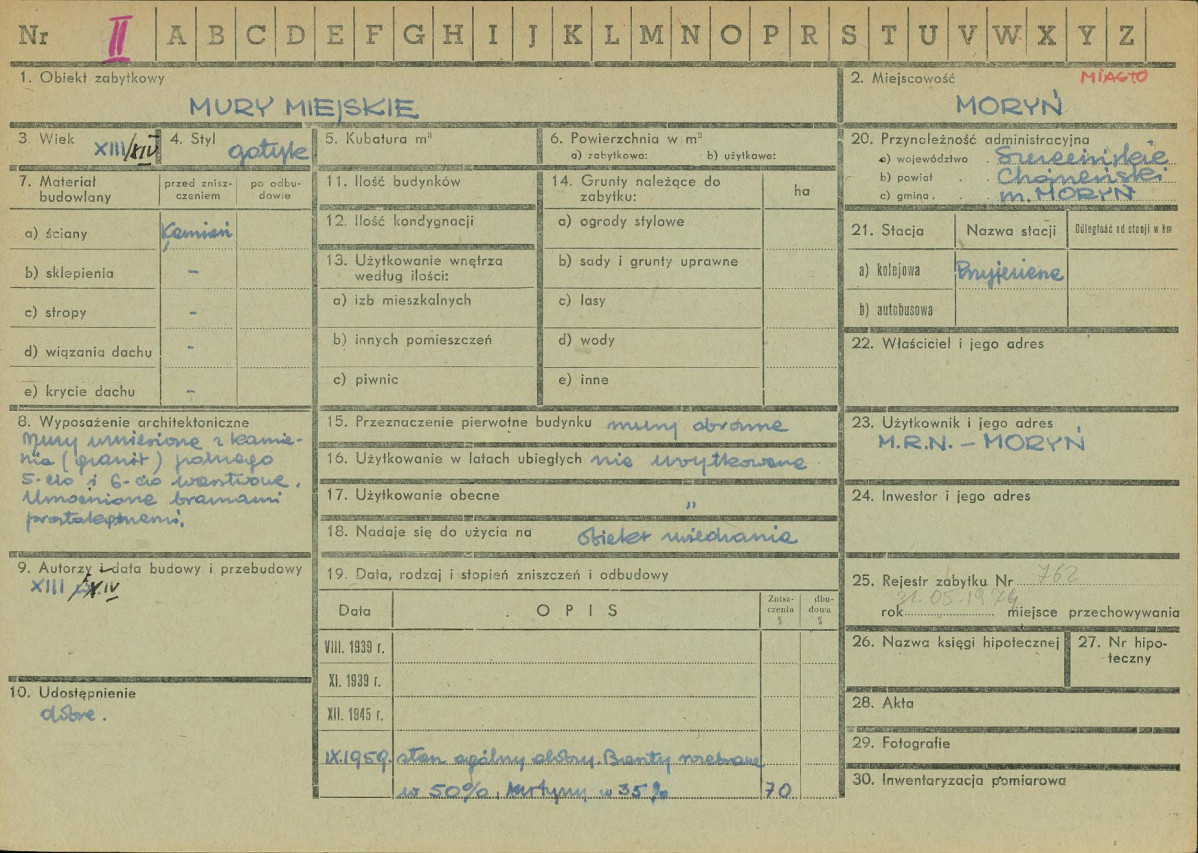 Nr II A B C D E F G H I J K L M N O P R S T U V W X Y Z
1. Obiekt zabytkowy
MURY MIEJSKIE
2. Miejscowość
MIASTO
MORYŃ
3. Wiek
XIII/XIV
4. Styl
gotyk
5. Kubatura m³
6. Powierzchnia w m²
a) zabytkowa: b) użytkowa:
20. Przynależność administracyjna
a) województwo . Szczecińskie
b) powiat . Chojeński
c) gmina . m. MORYŃ
7. Materiał budowlany
przed znisz-
czeniem
po odbu-
dowie
a) ściany Kamień
b) sklepienia -
c) stropy -
d) wiązania dachu -
e) krycie dachu -
11. Ilość budynków
12. Ilość kondygnacji
13. Użytkowanie wnętrza
według ilości:
a) izb mieszkalnych
b) innych pomieszczeń
c) piwnic
14. Grunty należące do
zabytku:
ha
a) ogrody stylowe
b) sady i grunty uprawne
c) lasy
d) wody
e) inne
21. Stacja Nazwa stacji Odległość od stacji w km
a) kolejowa
b) autobusowa
22. Właściciel i jego adres
8. Wyposażenie architektoniczne
Mury wzniesione z kamie-
nia (granit) polnego
5-cio i 6-cio warstwowe.
Umocnione bramami
15. Przeznaczenie pierwotne budynku mury obronne
16. Użytkowanie w latach ubiegłych nie użytkowane
17. Użytkowanie obecne "
18. Nadaje się do użycia na obiekt zwiedzania
23. Użytkownik i jego adres
M.R.N. – MORYŃ
24. Inwestor i jego adres
9. Autorzy i data budowy i przebudowy
XIII XIV
10. Udostępnienie
dobre.
19. Data, rodzaj i stopień zniszczeń i odbudowy
Data OPIS
Znisz-
czenia
%
dbu-
dowa
%
VIII. 1939 r.
XI. 1939 r.
XII. 1945 r.
IX.1959. stan ogólny dobry. Baszty rozebrane
w 50%, kurtyny w 35% 70
25. Rejestr zabytku Nr 762
31.05.1974
rok miejsce przechowywania
26. Nazwa księgi hipotecznej
27. Nr hipo-
teczny
28. Akta
29. Fotografie
30. Inwentaryzacja pomiarowa